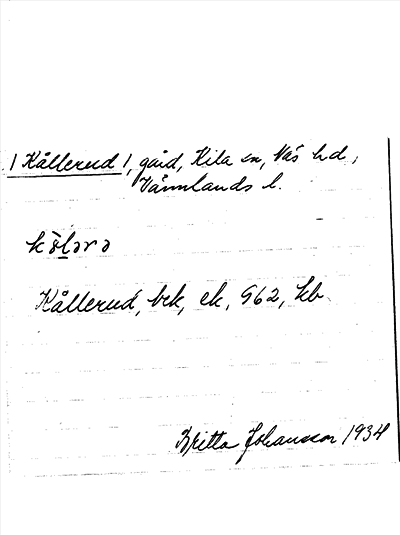 / Kållerud /, gård, Kila sn, Näs hd,
Värmlands l.
Kållerud, brk, ek, 962, kb
Britta Johansson 1934